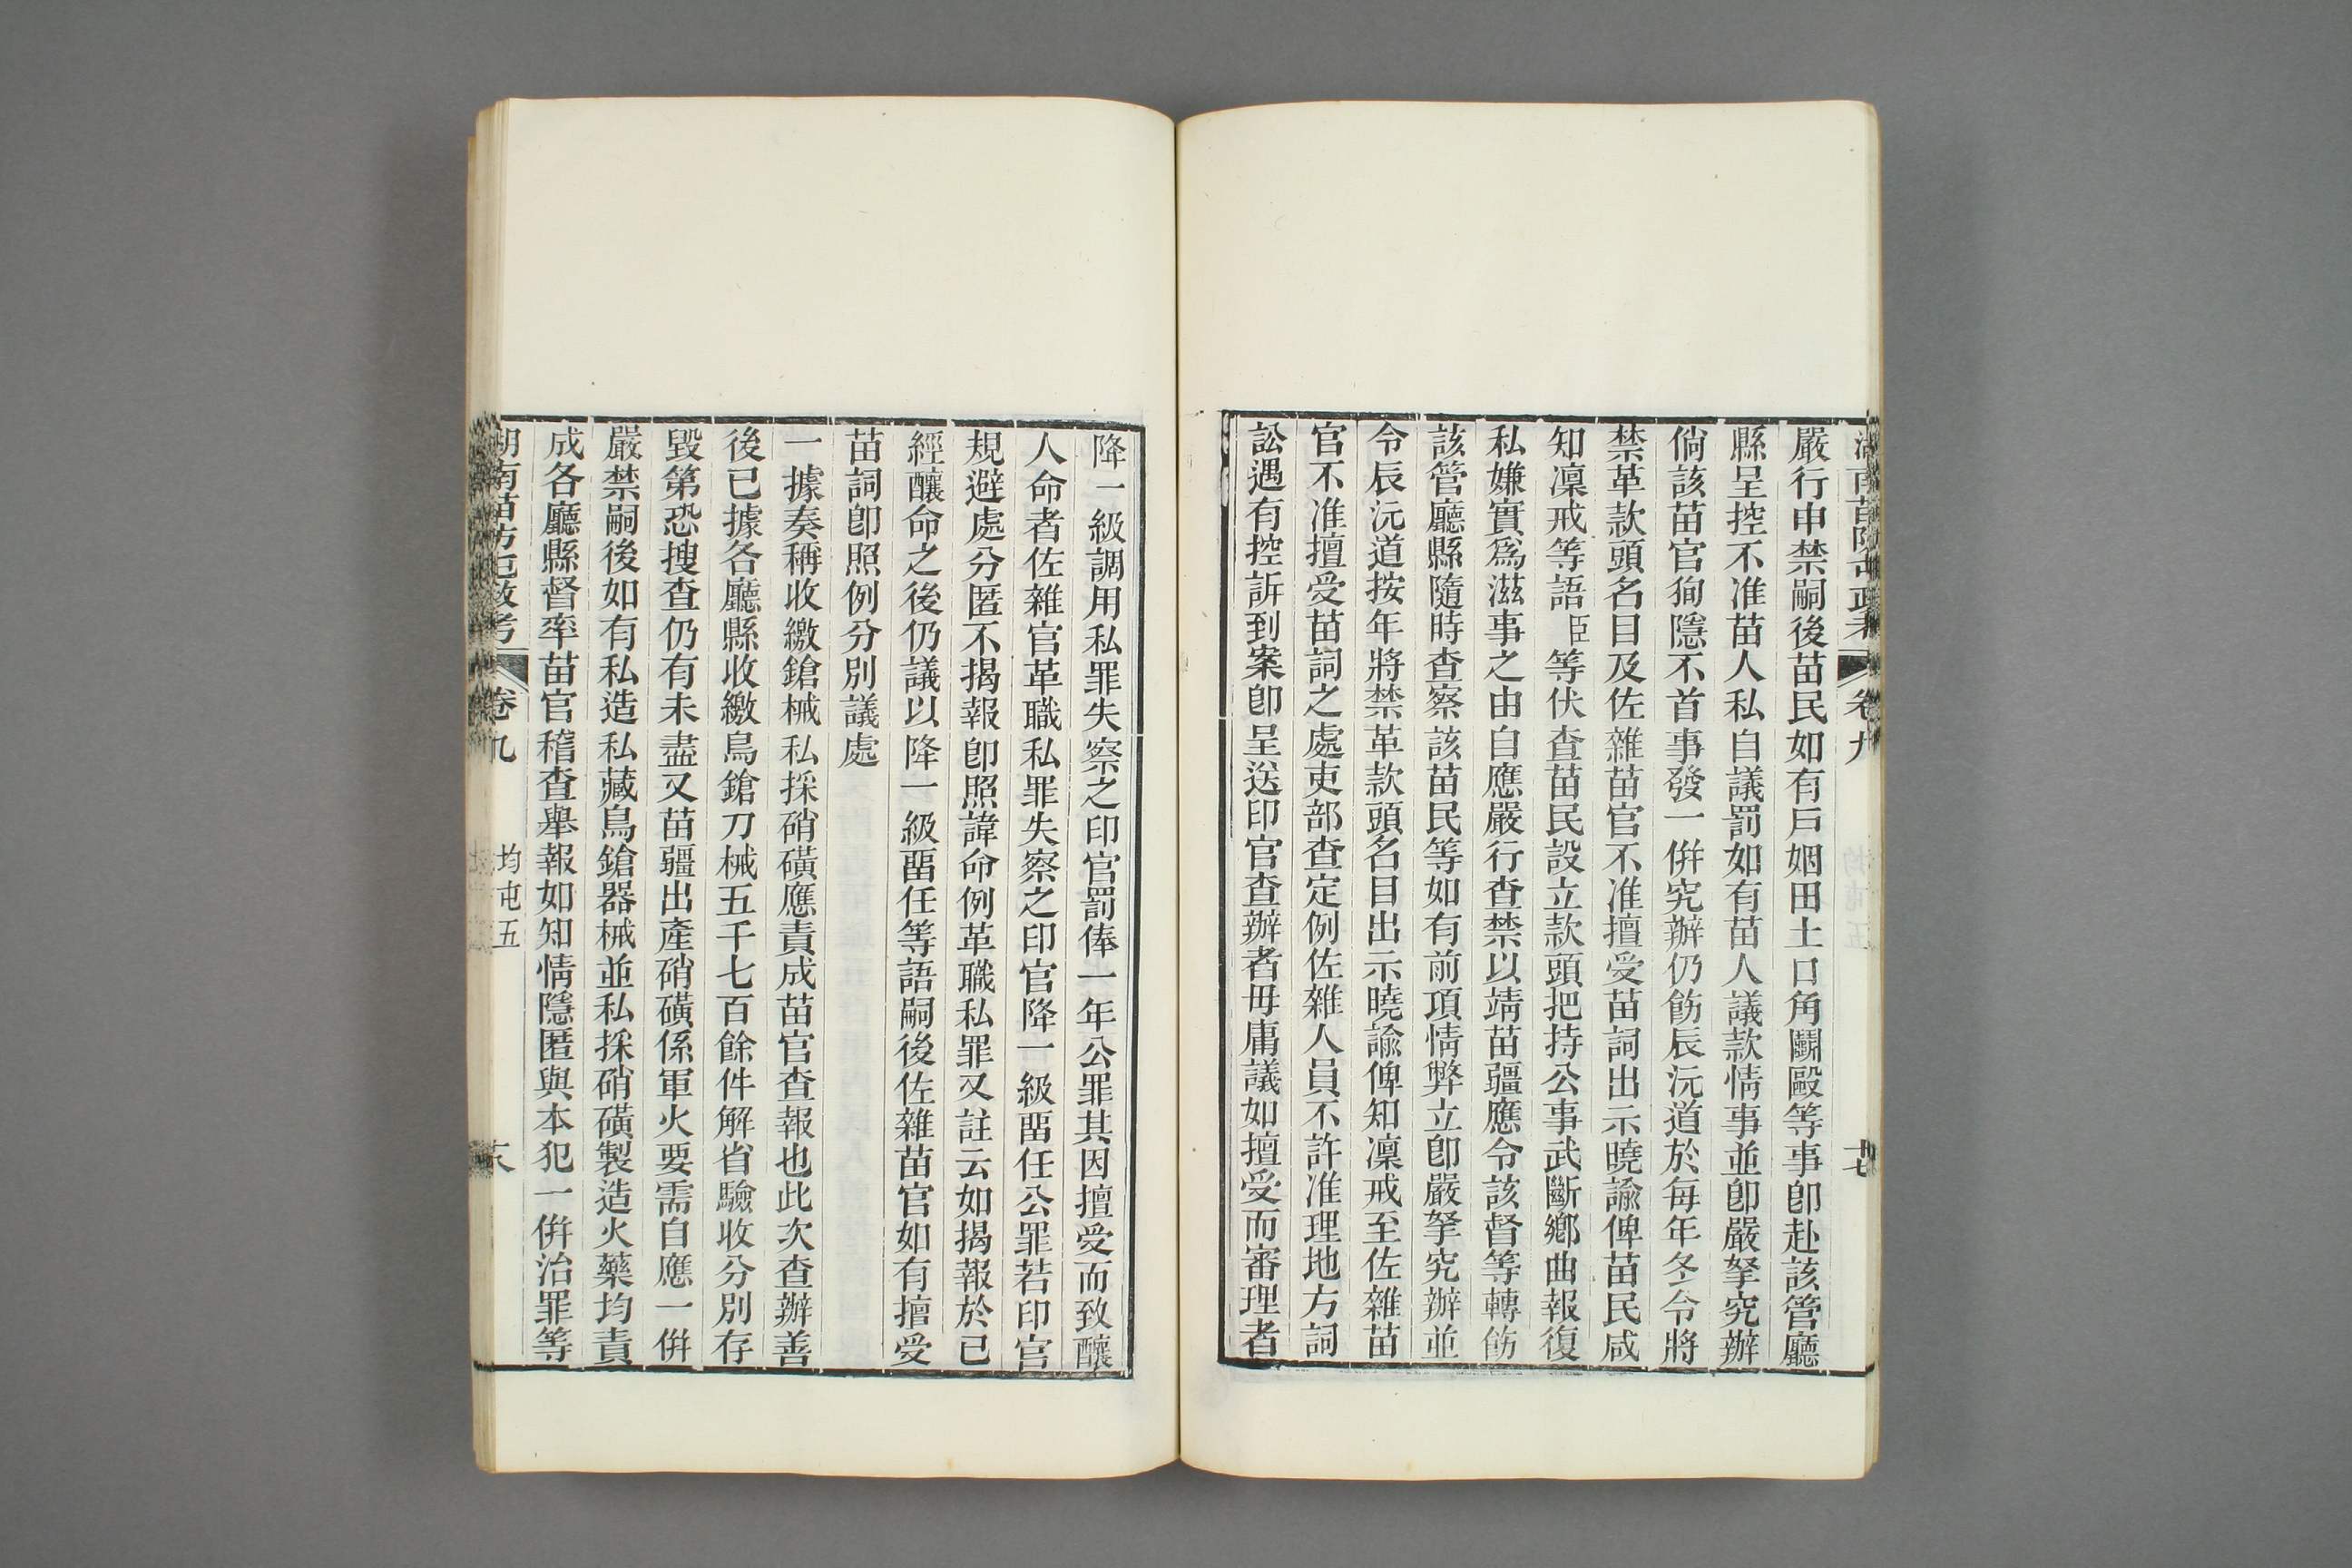 湖南苗防屯政考 卷九 十七
嚴行申禁嗣後苗民如有戶婣田土口角鬭毆等事卽赴該管廳
縣呈控不准苗人私自議罰如有苗人議款情事並卽嚴拏究辦
倘該苗官狥隱不首事發一倂究辦仍飭辰沅道於每年冬令將
禁革款頭名目及佐雜苗官不准擅受苗詞出示曉諭俾苗民咸
知凜戒等語臣等伏查苗民設立款頭把持公事武斷鄉曲報復
私嫌實爲滋事之由自應嚴行查禁以靖苗疆應令該督等轉飭
該管廳縣隨時查察該苗民等如有前項情弊立卽嚴拏究辦並
令辰沅道按年將禁革款頭名目出示曉諭俾知凜戒至佐雜苗
官不准擅受苗詞之處吏部查定例佐雜人員不許准理地方詞
訟遇有控訴到案卽呈送印官查辦者毋庸議如擅受而審理者
降一級調用私罪失察之印官罰俸一年公罪其因擅受而致釀
人命者佐雜官革職私罪失察之印官降一級畱任公罪若印官
規避處分匿不揭報卽照諱命例革職私罪又註云如揭報於已
經釀命之後仍議以降一級畱任等語嗣後佐雜苗官如有擅受
苗詞卽照例分別議處
一據奏稱收繳鎗械私採硝磺應責成苗官查報也此次查辦善
後已據各廳縣收繳鳥鎗刀械五千七百餘件解省驗收分別存
毀第恐搜查仍有未盡又苗疆出產硝磺係軍火要需自應一倂
嚴禁嗣後如有私造私藏鳥鎗器械並私採硝磺製造火藥均責
成各廳縣督率苗官稽查舉報如知情隱匿與本犯一倂治罪等
湖南苗防屯政考 卷九 均屯五 十八